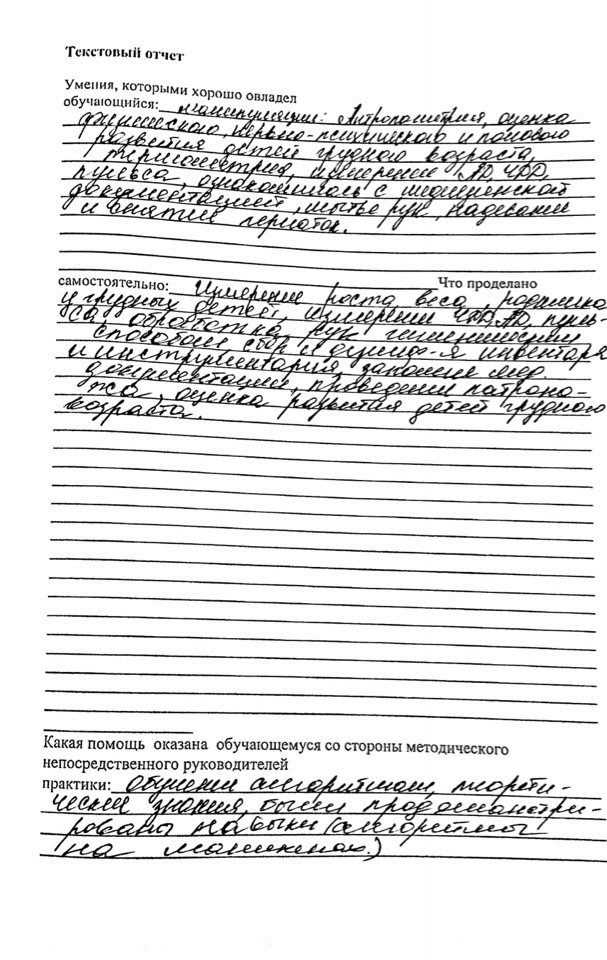 Текстовый отчет
Умения, которыми хорошо овладел
обучающийся: манипуляции: Антропометрия, оценка
физического, нервно-психического и полового
развития детей грудного возраста,
термометрия, измерение АД, ЧДД,
пульса, ознакомилась с медицинской
документацией, мытье рук, надевании
и снятии перчаток.
самостоятельно: Измерение роста веса,
и грудных детей, измерении ЧДД, АД, пуль-
са, обработка рук гигиеническим
способом сбор и дезинф-я инвентаря
и инструментария, заполне мед.
документации, проведении патрона-
жа, оценка развития детей грудного
возраста.
Что проделано
Какая помощь оказана обучающемуся со стороны методического
непосредственного руководителей
практики: обучении алгоритмам, теорети-
ческие знания, были продемонстри-
рованы навыки (алгоритмы
на манекенах.)